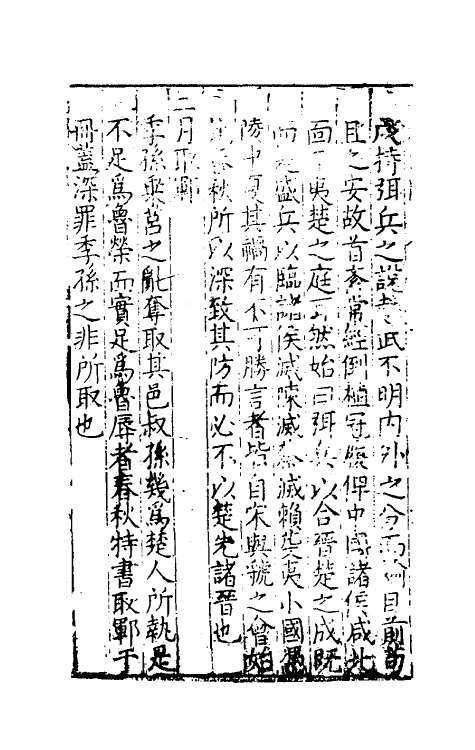 戌持弭兵之說趙武不明內外之分而徇目前苟
且之安故首紊常經倒植冠履俾中國諸侯咸北
面于夷楚之庭可然始曰弭兵以合晉楚之成既
而盛兵以臨諸侯滅陳滅蔡滅賴莫夷小國憑
陵中夏其禍有不可勝言者皆自宋與虢之會始
春秋所以深致其防而必不以楚先諸晉也
三月取鄆
季孫乘莒之亂奪取其邑叔孫幾為楚人所執是
不足為魯榮而實足為魯辱者春秋特書取鄆于
冊蓋深罪季孫之非所取也